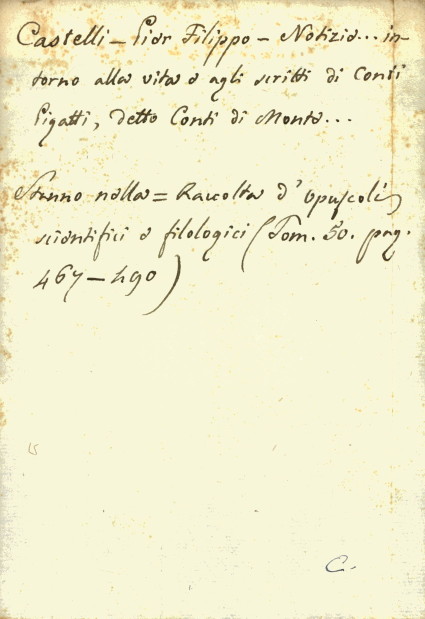 Castelli – Pier Filippo – Notizie... in-
torno alla vita e agli scritti di Conti
Pigatti, detto Conti di Monte...
Stanno nella = Raccolta d'opuscoli
scientifici e filologici (Tom. 50. pag.
467 – 490)
15
C.